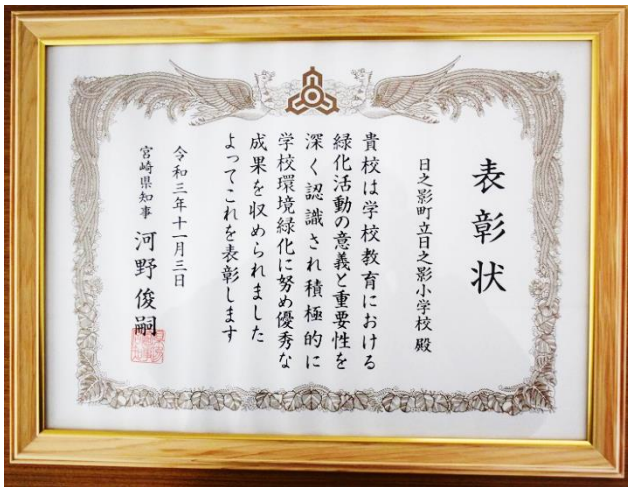 表彰状
日之影町立日之影小学校 殿
貴校は学校教育における
緑化活動の意義と重要性を
深く認識され積極的に
学校環境緑化に努め優秀な
成果を収められました
よってこれを表彰します
令和三年十一月三日
宮崎県知事 河野俊嗣